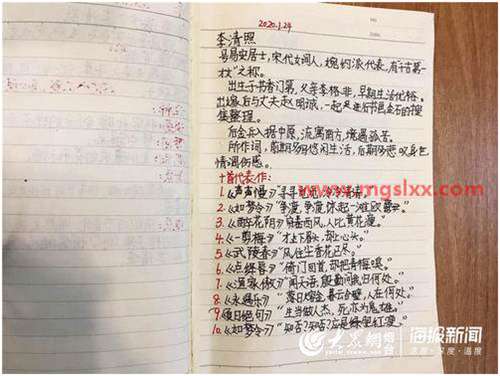 2020.1.24
李清照
号易安居士,宋代女词人,婉约派代表,有"千古第一
才女"之称。
出生于书香门第,父亲李格非,早期生活优裕。
出嫁后与丈夫赵明诚,一起走进书画金石的搜
集整理。
后金兵入据中原,流寓南方,境遇孤苦。
所作词,前期多写悠闲生活,后期多悲叹身世
情调伤感。
十首代表作:
1.《声声慢》"寻寻觅觅,冷冷清清。
www.mgslxx.com
2.《如梦令》"争渡,争渡,惊起一滩鸥鹭。"
3.《醉花阴》"帘卷西风,人比黄花瘦。"
4.《一剪梅》"才下眉头,却上心头。"
5.《武陵春》"风住尘香花已尽。"
6.《点绛唇》"倚门回首,却把青梅嗅。"
7.《渔家傲》"闻天语,殷勤问我归何处。"
8.《永遇乐》"落日熔金,暮云合璧,人在何处。"
9.《夏日绝句》"生当做人杰,死亦为鬼雄。"
10.《如梦令》"知否?知否?应是绿肥红瘦。"
大众网 海报新闻